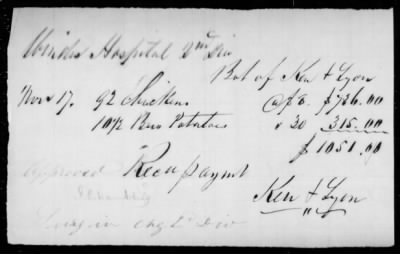 Winder Hospital 2nd Div
Bot of Ken & Lyon
Nov 17. 92 Chickens @ $8. $736.00
10½ Bus Potatoes " 30 315.00
$1051.00
Approved Rec'd paymt
Ken & Lyon
Surg in chg 2d Div